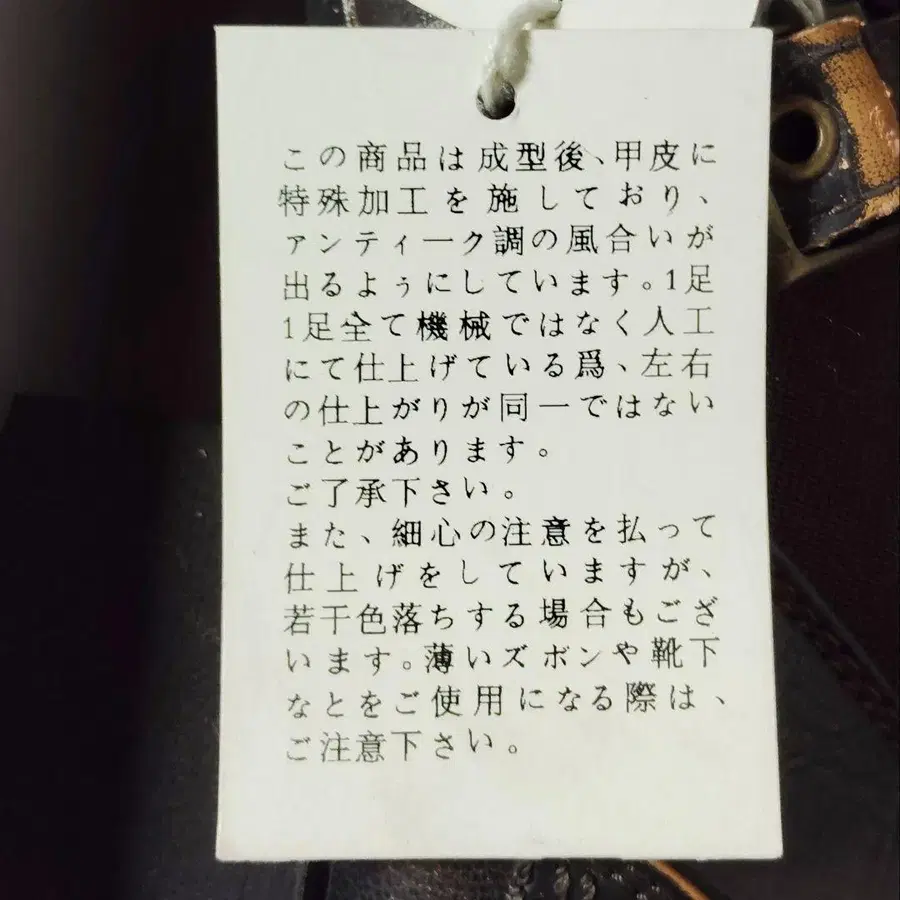 この商品は成型後、甲皮に
特殊加工を施しており、
ァンティーク調の風合いが
出るよぅにしています。1足
1足全て機械ではなく人工
にて仕上げている爲、左右
の仕上がりが同一ではない
ことがあります。
ご了承下さい。
また、細心の注意を払って
仕上げをしていますが、
若干色落ちする場合もござ
います。薄いズボンや靴下
なとをご使用になる際は、
ご注意下さい。